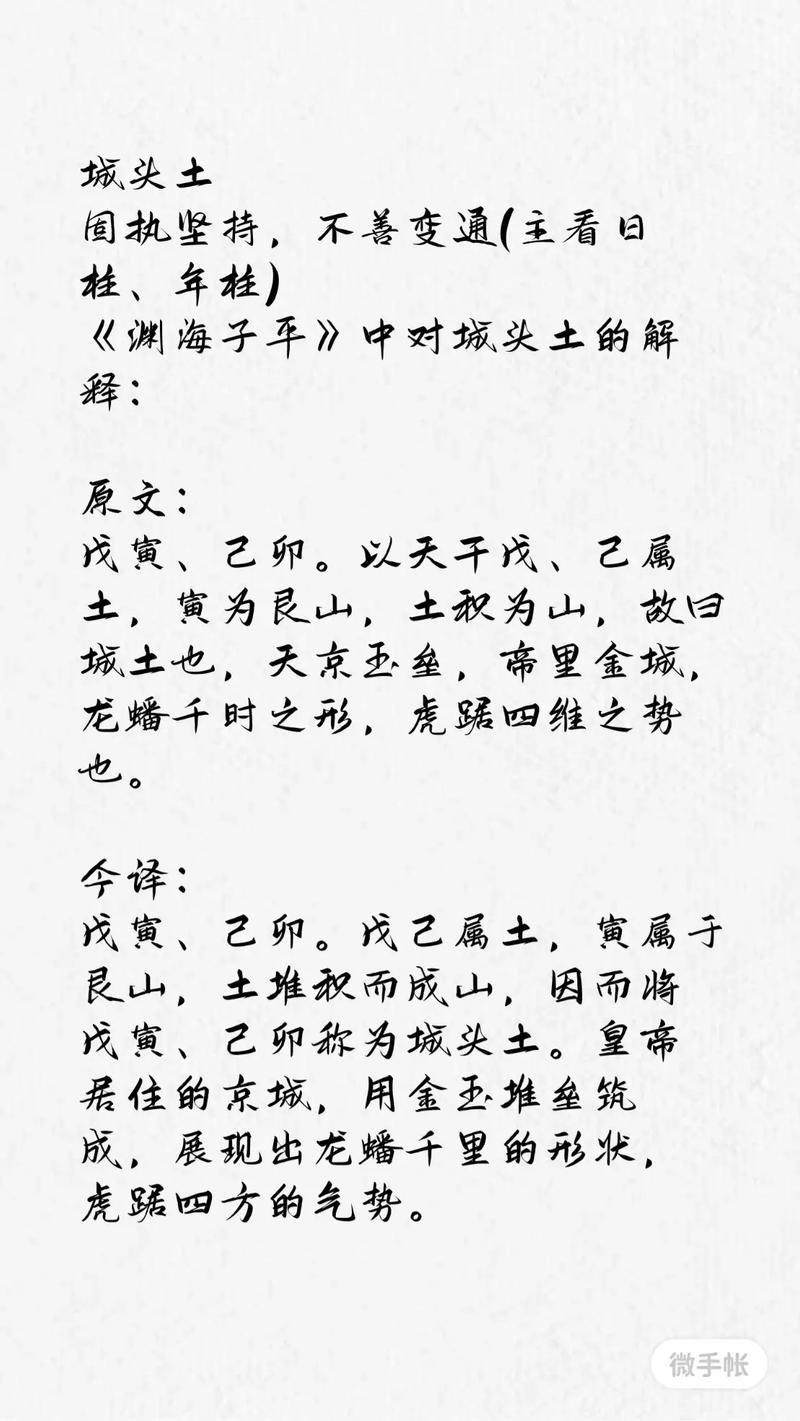 城头土
固执坚持，不善变通(主看日
柱、年柱)
《渊海子平》中对城头土的解
释：
原文：
戊寅、己卯。以天干戊、己属
土，寅为艮山，土积为山，故曰
城土也，天京玉垒，帝里金城，
龙蟠千时之形，虎踞四维之势
也。
今译：
戊寅、己卯。戊己属土，寅属于
艮山，土堆积而成山，因而将
戊寅、己卯称为城头土。皇帝
居住的京城，用金玉堆垒筑
成，展现出龙蟠千里的形状，
虎踞四方的气势。
微手帐